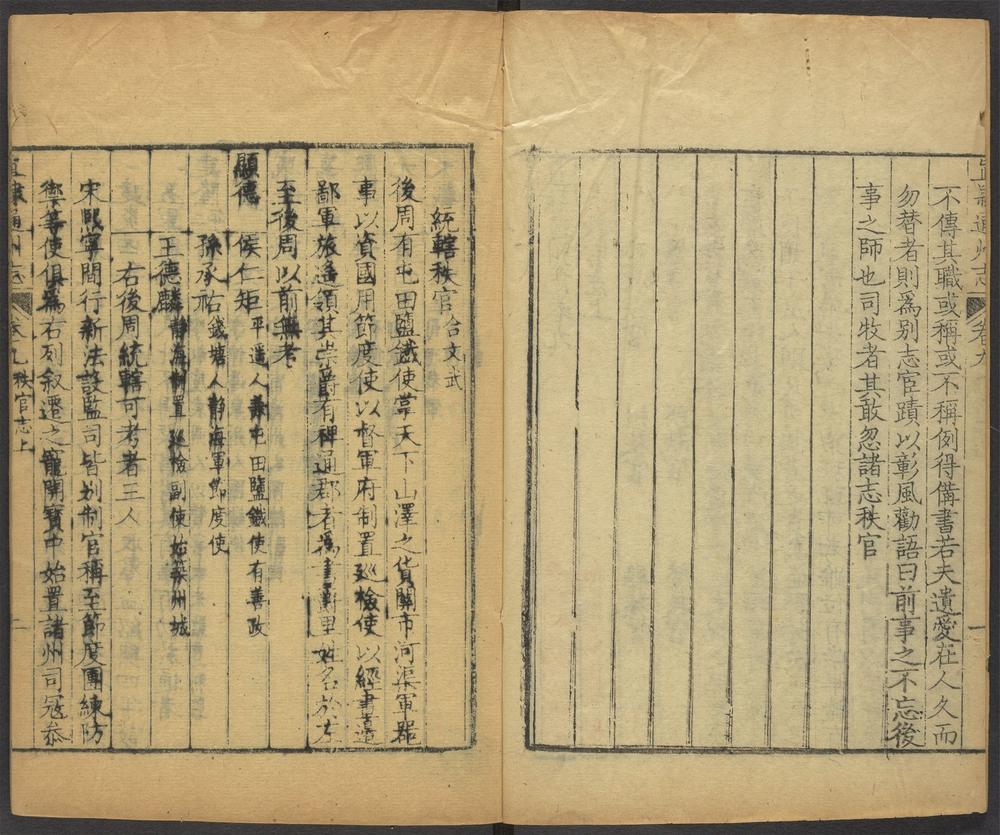 直隸通州志 卷九
不傳其職或稱或不稱例得備書若夫遺愛在人久而
勿替者則爲别志宦蹟以彰風勸語曰前事之不忘後
事之師也司牧者其敢忽諸志秩官
統轄秩官合文武
後周有屯田鹽鐵使掌天下山澤之貨關市河渠軍器
事以資國用節度使以督軍府制置廵檢使以經畫邊
鄙軍旅遥領其崇爵有裨通郡者爲書爵里姓名於左
至後周以前無考
顯德 侯仁矩平遥人兼屯田鹽鐵使有善政
孫承祐錢塘人靜海軍節度使
王德麟靜海制置廵檢副使始築州城
右後周統轄可考者三人
宋熙寧間行新法設監司皆别制官稱至節度團練防
禦等使俱爲右列叙遷之寵開寶中始置諸州司寇叅
直隸通州志 卷九 秩官志上 二